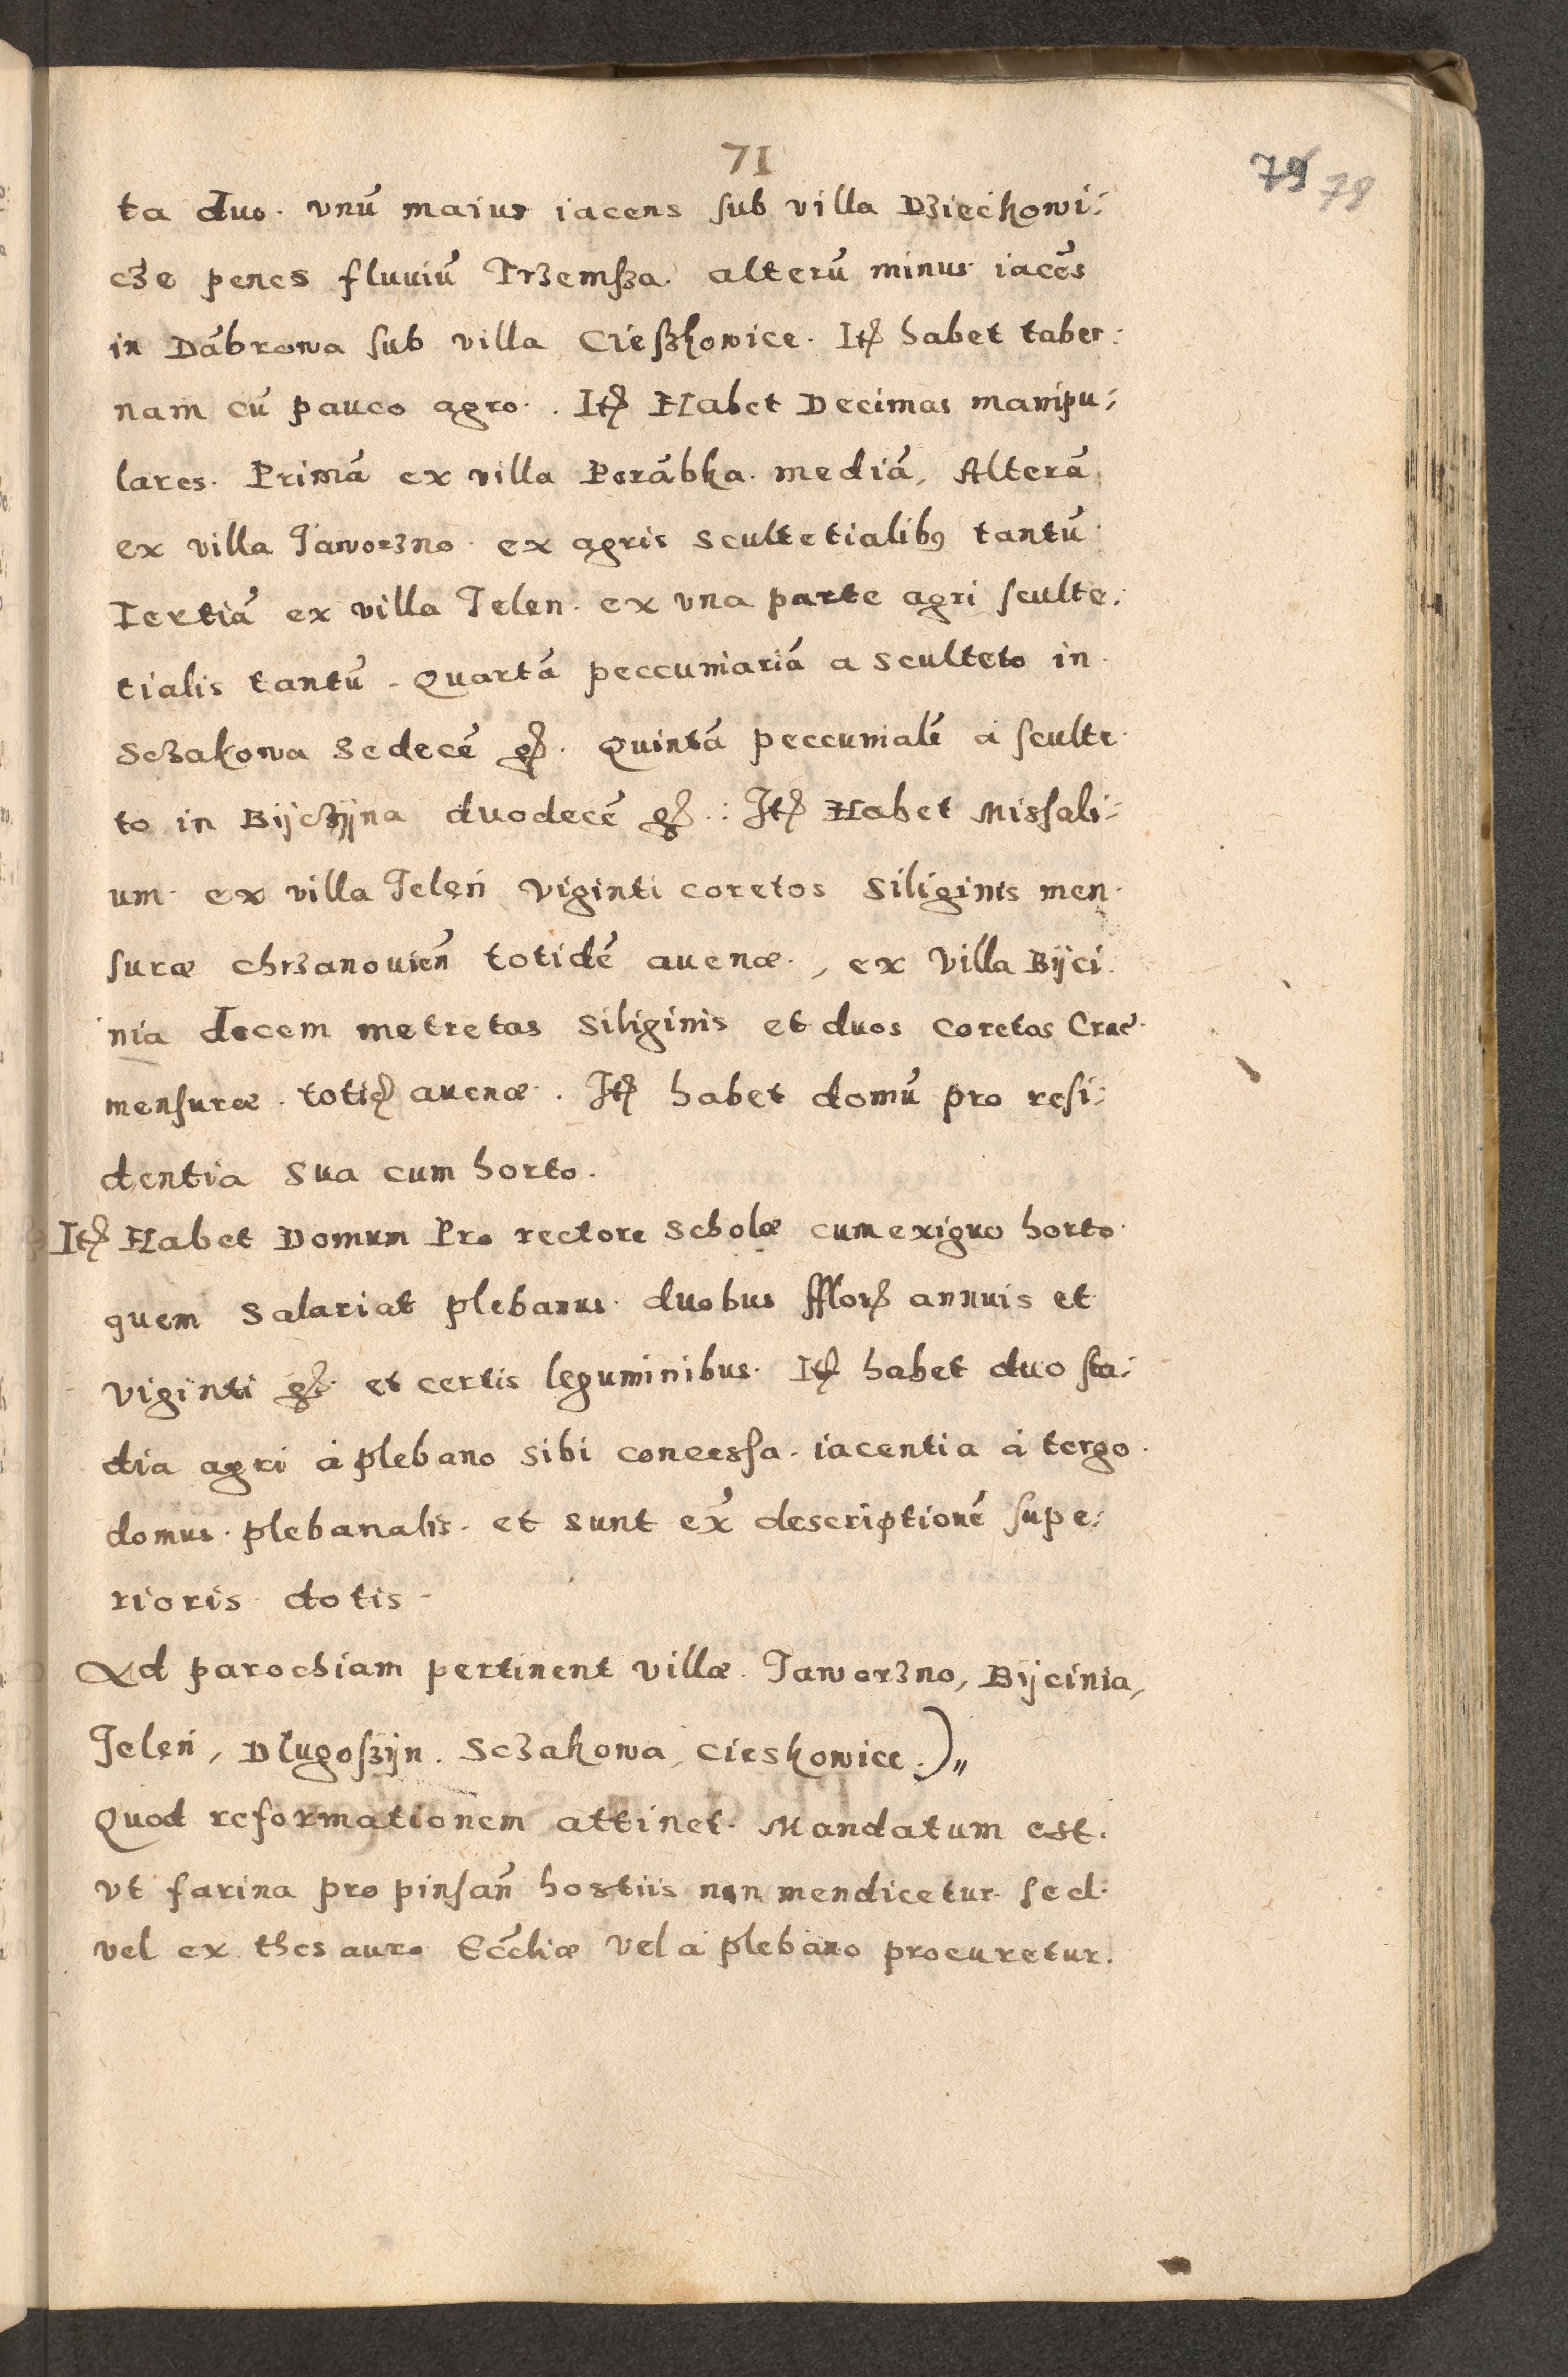 71
79 78
ta duo. vnū maius iacens ſub villa Dʒiećkowi:
cʒe penes fluuiū Trʒemſʒa alterū minus iacēs
in Dábrowa ſub villa Cieſʒkowice. Itꝭ habet taber:
nam cū pauco agro. Itꝭ Habet Decimas manipu:
lares. Primā ex villa Porábka. mediā, Alterā
ex villa Jaworʒno. ex agris scultetialibꝯ tantū
Tertiā ex villa Jelen. ex vna parte agri ſculte:
tialis tantū. Quartā peccuniariā a sculteto in.
Scʒakowa Sedecē gꝭ. Quintā peccunialē á ſculte.
to in Bijcʒÿna duodecē gꝭ.: Jtꝭ Habet Missali:
um. ex villa Jeleń viginti coretos Siliginis men.
ſuræ chrʒanouień totidē auenæ., ex Villa Bÿci
nia decem metretas Siliginis et duos coretos Crac̄.
menſuræ. totiꝭ auenæ. Jtꝭ habet domū pro reſi:
dentia Sua cum horto.
Itꝭ Habet Domum Pro rectore Scholæ cum exiguo horto.
quem Salariat plebanus. duobus fflorꝭ annuis et
viginti gꝭ. et certis leguminibus. Itꝭ habet duo ſta:
dia agri á plebano Sibi conceſsa. iacentia á tergo.
domus. plebanalis. et sunt ex̄ descriptionē ſupe:
rioris dotis.
Ad parochiam pertinent villæ. Jaworʒno, Bÿcinia,
Jeleń, Długoſʒÿn. Scʒakowa, Cieskowice.)„
Quod reformationem attinet. Mandatum est.
vt farina pro pinſań hostiis non mendicetur. ſed.
vel ex thesauro Ecc̄liæ vel á plebano procuretur.